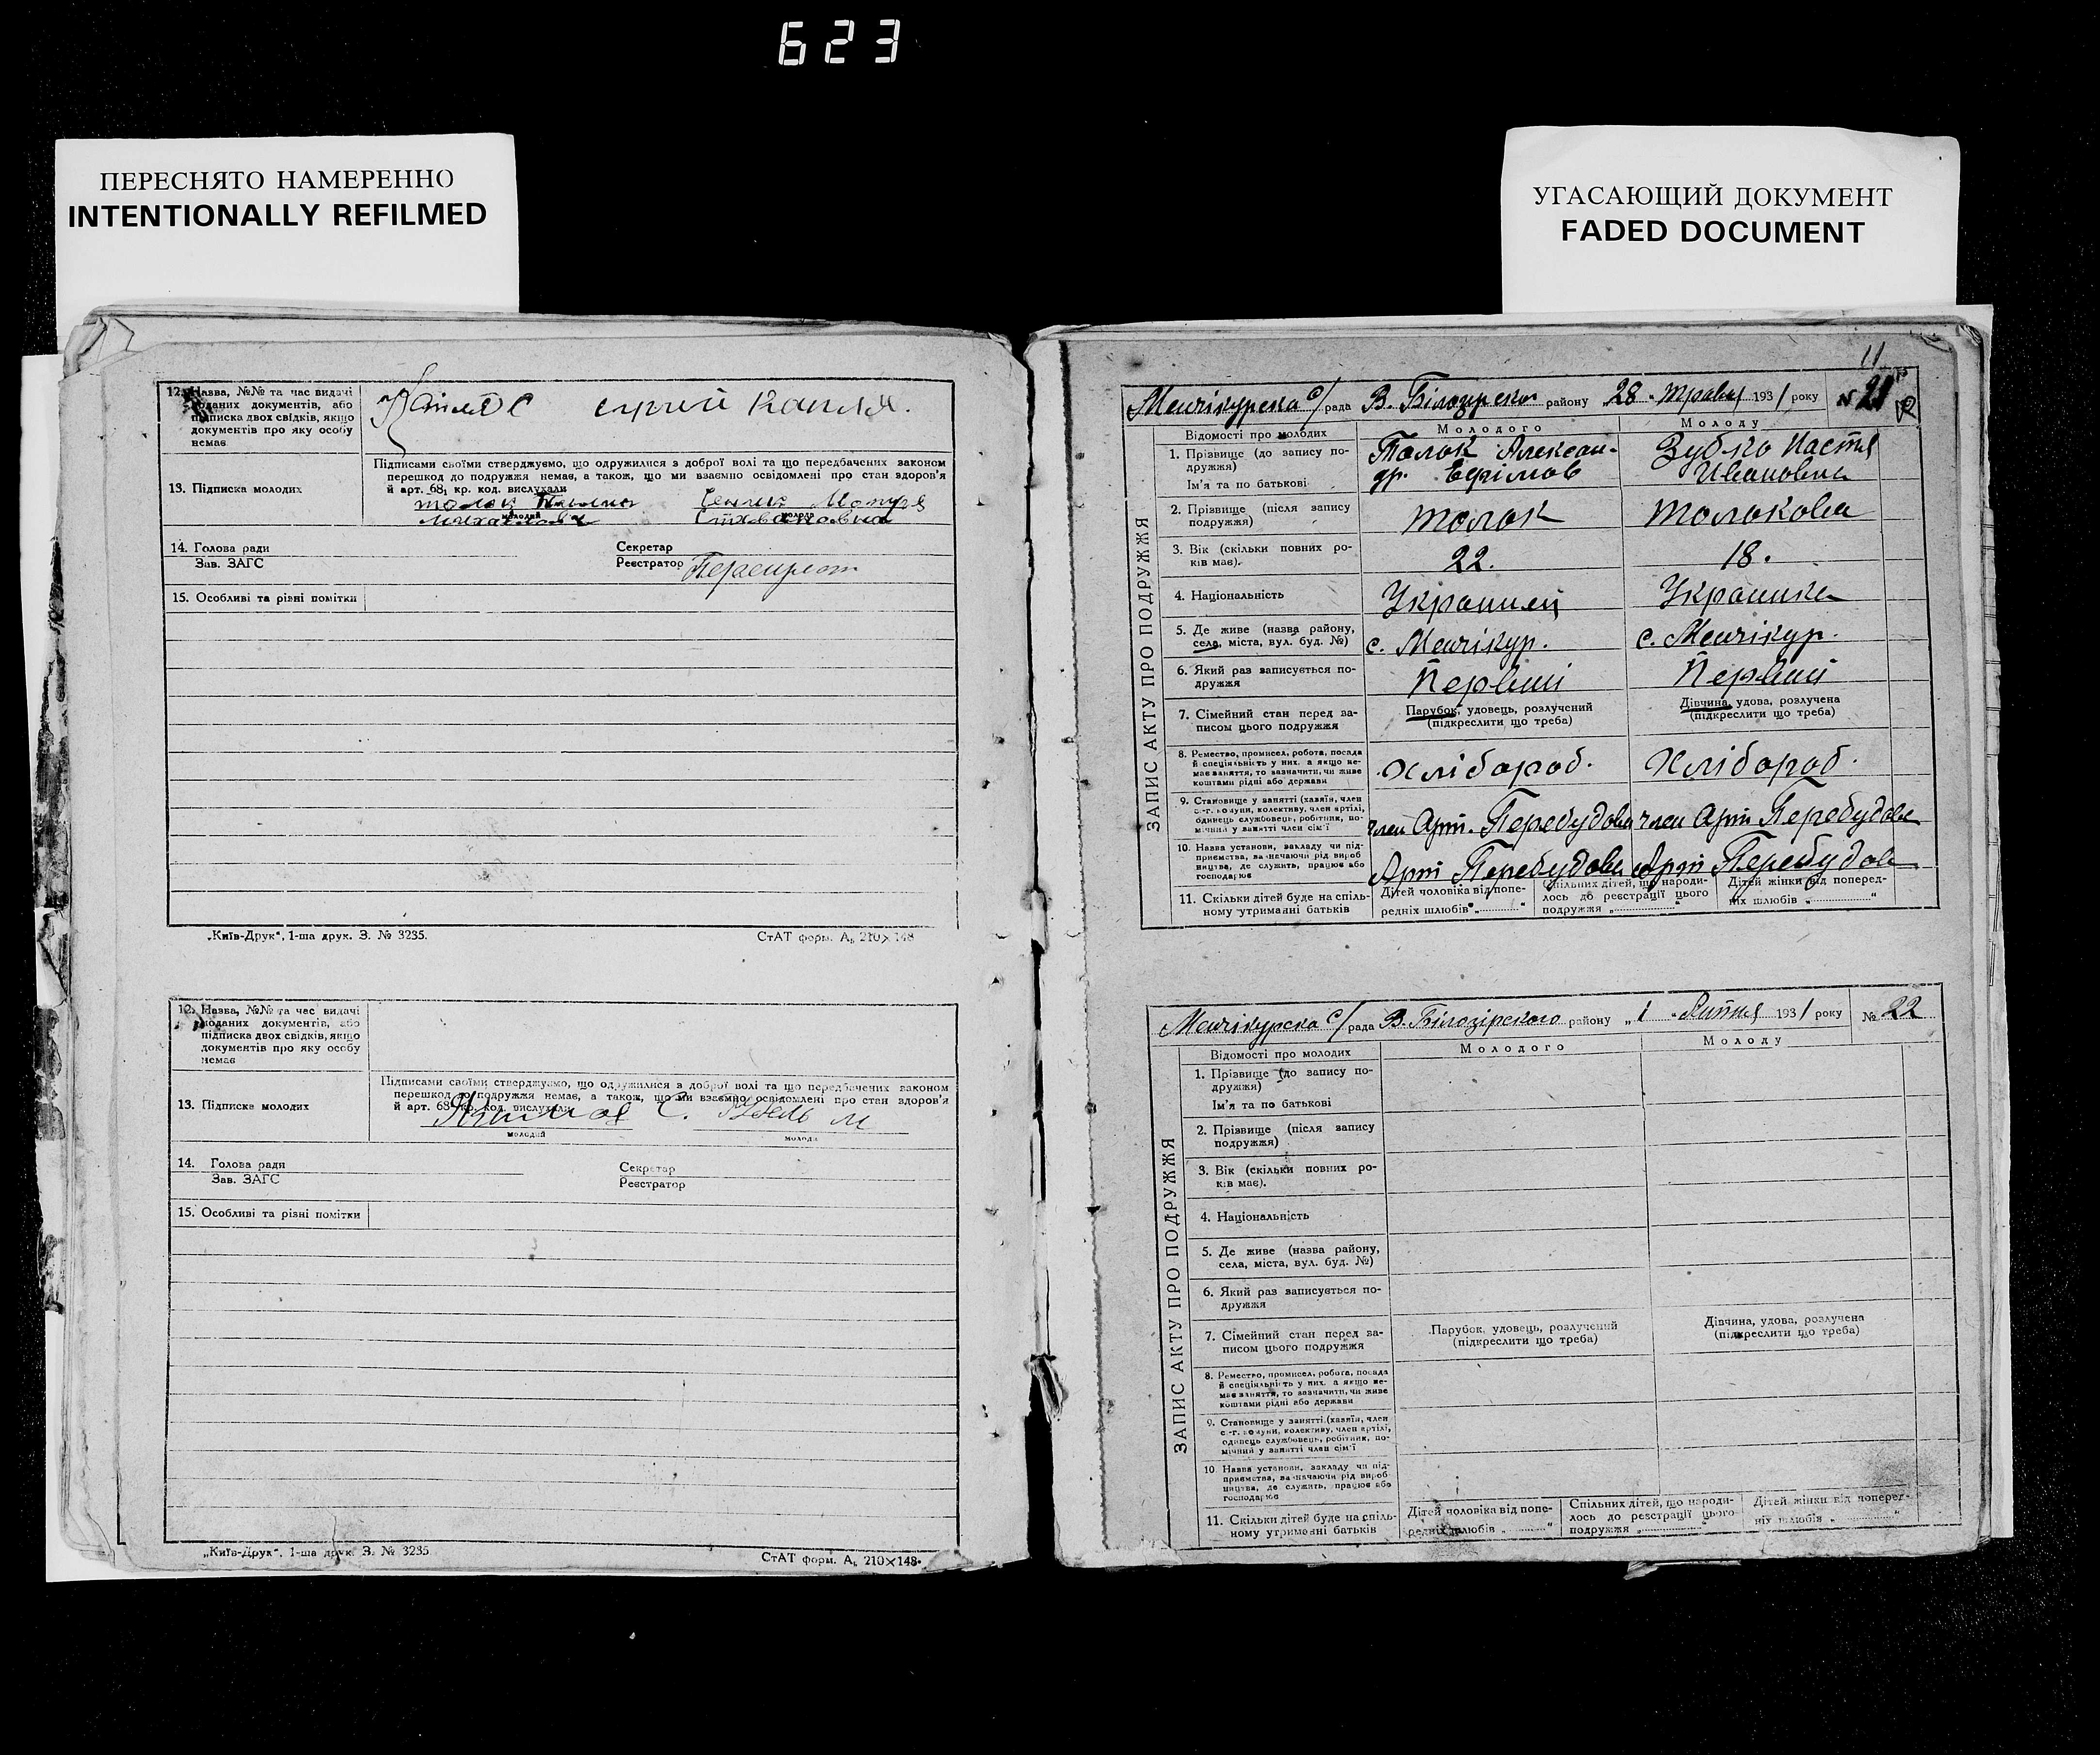 623
ПЕРЕСНЯТО НАМЕРЕННО
INTENTIONALLY REFILMED
УГАСАЮЩИЙ ДОКУМЕНТ
FADED DOCUMENT
12. Назва, №№ та час видачі
поданих документів, або
підписка двох свідків, якщо
документів про яку особу
немає
сергій Капля.
13. Підписка молодих
Підписами своїми стверджуємо, що одружилися з доброї волі та що передбачених законом
перешкод до подружжя немає, а також, що ми взаємно освідомлені про стан здоров'я
й арт. 68, кр. код. вислухали
молодий
молода
14. Голова ради
Секретар
Зав. ЗАГС
Реєстратор
15. Особливі та різні помітки
„Київ-Друк“, 1-ша друк. З. № 3235.
СтАТ форм. А₅ 210×148
12. Назва, №№ та час видачі
поданих документів, або
підписка двох свідків, якщо
документів про яку особу
немає
13. Підписка молодих
Підписами своїми стверджуємо, що одружилися з доброї волі та що передбачених законом
перешкод до подружжя немає, а також, що ми взаємно освідомлені про стан здоров'я
й арт. 68 кр. код. вислухали
молодий
молода
14. Голова ради
Секретар
Зав. ЗАГС
Реєстратор
15. Особливі та різні помітки
„Київ-Друк“, 1-ша друк. З. № 3235
СтАТ форм. А₅ 210×148
11
Менчікурська с/рада В. Білозірськ району 28 травня 1931 року № 21
ЗАПИС АКТУ ПРО ПОДРУЖЖЯ
Відомості про молодих
Молодого
Молоду
1. Прізвище (до запису по-
дружжя)
Ім'я та по батькові
Толок Алексан-
др. Ефімов
Зубко Настя
Ивановна
2. Прізвище (після запису
подружжя)
Толок
Толокова
3. Вік (скільки повних ро-
ків має).
22.
18.
4. Національність
Украинец
Украинка
5. Де живе (назва району,
села, міста, вул. буд. №)
с. Менчікур.
с. Менчікур.
6. Який раз записується по-
дружжя
Первий
Первий
7. Сімейний стан перед за-
писом цього подружжя
Парубок, удовець, розлучений
(підкреслити що треба)
Дівчина, удова, розлучена
(підкреслити що треба)
8. Ремество, промисел, робота, посада
й спеціяльність у них, а якщо не-
має заняття, то зазначити, чи живе
коштами рідні або держави
Хлібороб.
Хлібороб.
9. Становище у занятті (хазяїн, член
с.-г. комуни, колективу, член артілі,
одинець службовець, робітник, по-
мічний у занятті член сім'ї
член Арт. Перебудова
член Арт Перебудова
10. Назва установи, закладу чи під-
приємства, зазначаючи рід вироб
ництва, де служить, працює або
господарює
Арт Перебудова
Арт Перебудова
11. Скільки дітей буде на спіль-
ному утриманні батьків
Дітей чоловіка від попе-
редніх шлюбів „ “
Спільних дітей, що народи-
лось до реєстрації цього
подружжя „ “
Дітей жінки від поперед-
ніх шлюбів „ “
Менчікурська с/рада В. Білозірського району „1 “ Липня 1931 року № 22
ЗАПИС АКТУ ПРО ПОДРУЖЖЯ
Відомості про молодих
Молодого
Молоду
1. Прізвище (до запису по-
дружжя)
Ім'я та по батькові
2. Прізвище (після запису
подружжя)
3. Вік (скільки повних ро-
ків має).
4. Національність
5. Де живе (назва району,
села, міста, вул. буд. №)
6. Який раз записується по-
дружжя
7. Сімейний стан перед за-
писом цього подружжя
Парубок, удовець, розлучений
(підкреслити що треба)
Дівчина, удова, розлучена
(підкреслити що треба)
8. Ремество, промисел, робота, посада
й спеціяльність у них, а якщо не-
має заняття, то зазначити, чи живе
коштами рідні або держави
9. Становище у занятті (хазяїн, член
с.-г. комуни, колективу, член артілі,
одинець службовець, робітник, по-
мічний у занятті член сім'ї
10. Назва установи, закладу чи під-
приємства, зазначаючи рід вироб
ництва, де служить, працює або
господарює
11. Скільки дітей буде на спіль-
ному утриманні батьків
Дітей чоловіка від попе-
редніх шлюбів „ “
Спільних дітей, що народи-
лось до реєстрації цього
подружжя „ “
Дітей жінки від поперед-
ніх шлюбів „ “